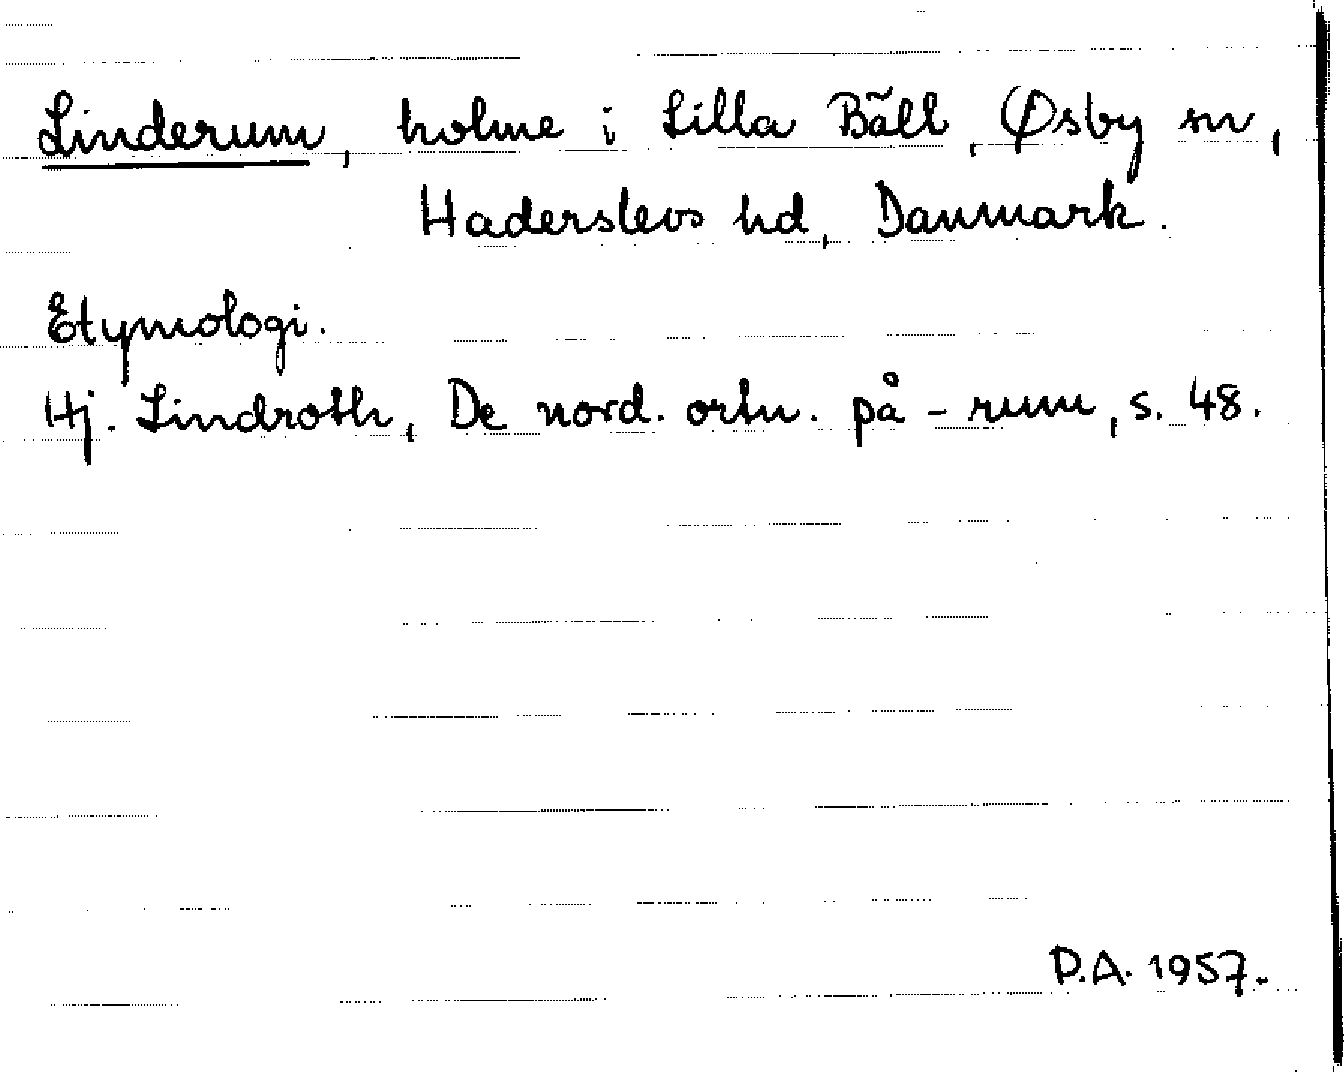 Linderum, holme i Lilla Bält, Øsby sn,
Haderslevs hd, Danmark.
Etymologi.
Hj. Lindroth, De nord. ortn. på -rum, s. 48.
P.A. 1957.